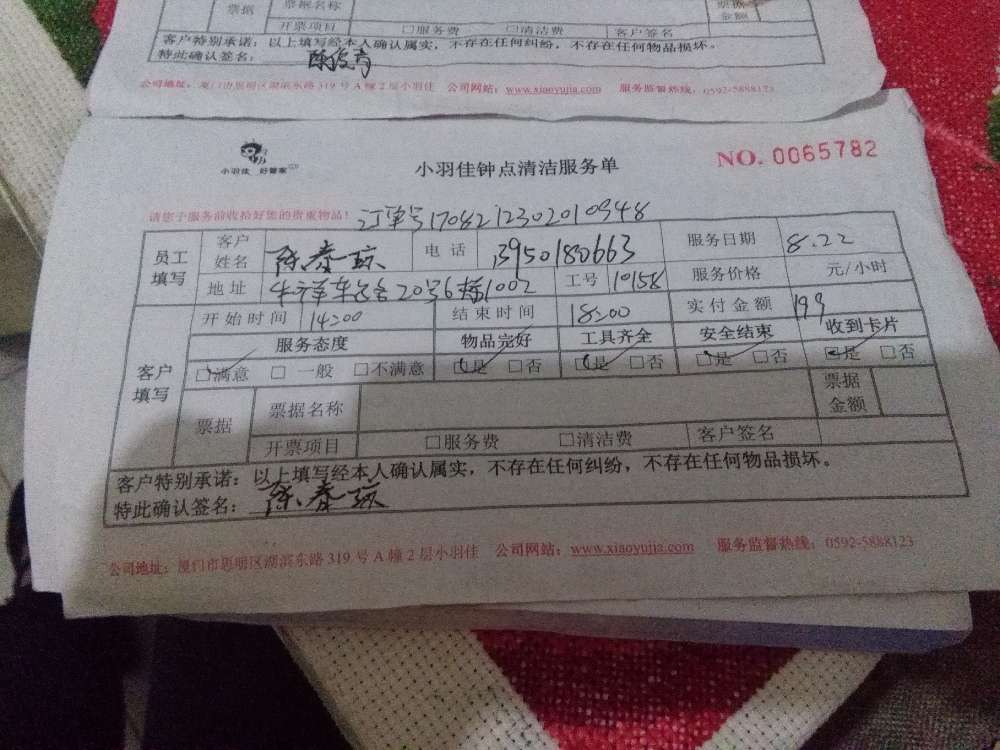 票据 票据名称 票据金额
开票项目 □服务费 □清洁费 客户签名
客户特别承诺：以上填写经本人确认属实，不存在任何纠纷，不存在任何物品损坏。
特此确认签名：
公司地址：厦门市思明区湖滨东路319号A幢2层小羽佳 公司网站：www.xiaoyujia.com 服务监督热线：0592-5888123
小羽佳 好管家
小羽佳钟点清洁服务单 NO. 0065782
请您于服务前收拾好您的贵重物品！ 订单号1708212302010948
员工填写 客户姓名 陈泰琼 电话 13950180663 服务日期 8.22
地址 20号6梯1002 工号 10158 服务价格 元/小时
客户填写 开始时间 14:00 结束时间 18:00 实付金额 199
服务态度 物品完好 工具齐全 安全结束 收到卡片
□满意 □一般 □不满意 □是 □否 □是 □否 □是 □否 □是 □否
票据 票据名称 票据金额
开票项目 □服务费 □清洁费 客户签名
客户特别承诺：以上填写经本人确认属实，不存在任何纠纷，不存在任何物品损坏。
特此确认签名：陈泰琼
公司地址：厦门市思明区湖滨东路319号A幢2层小羽佳 公司网站：www.xiaoyujia.com 服务监督热线：0592-5888123